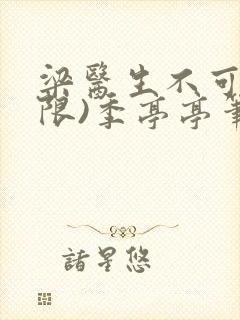 梁醫生不可
限)季亭亭筆
諸星悠